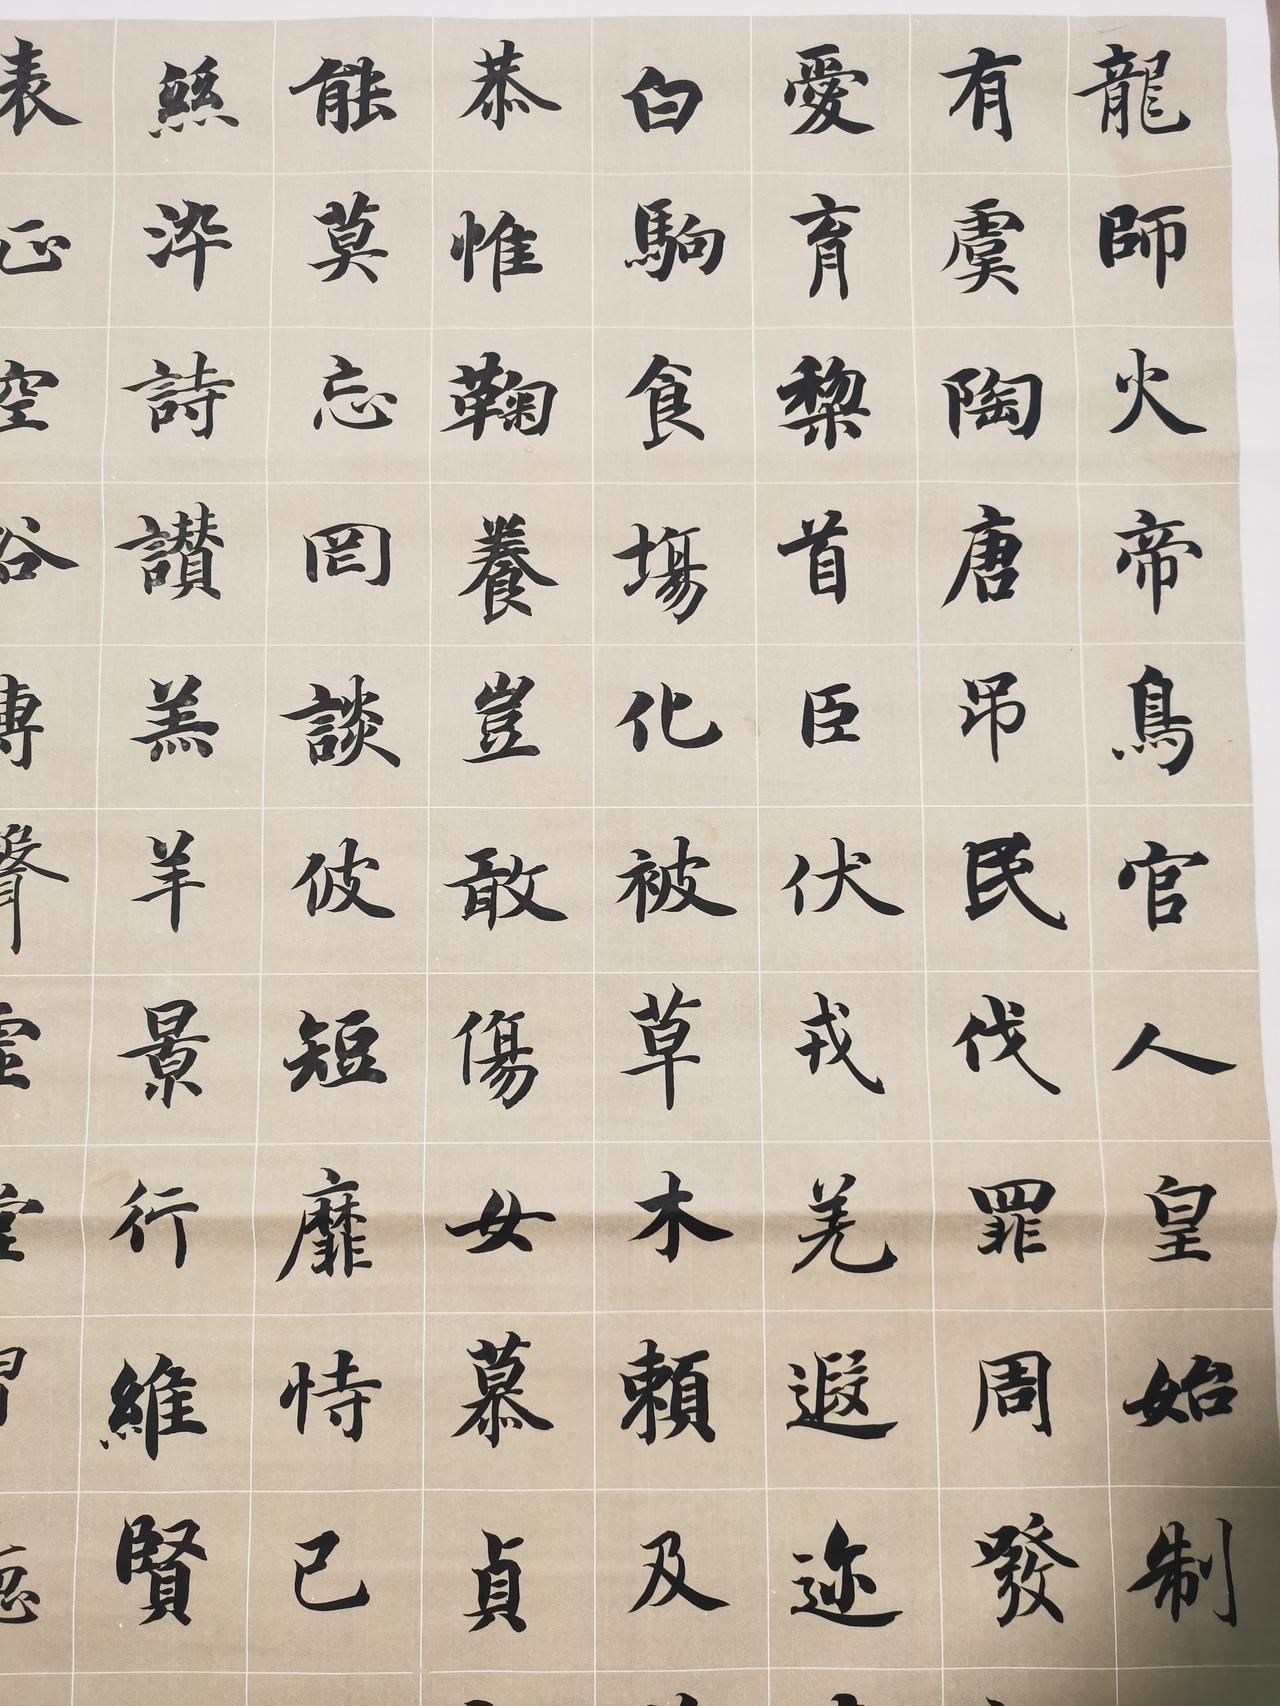 龍師火帝鳥官人皇始制
有虞陶唐吊民伐罪周發
愛育黎首臣伏戎羌遐迩
白駒食塲化被草木賴及
恭惟鞠養豈敢傷女慕貞
能莫忘罔談彼短靡恃己
絲染詩讚羔羊景行維賢
表正空谷傳聲虛堂習聽